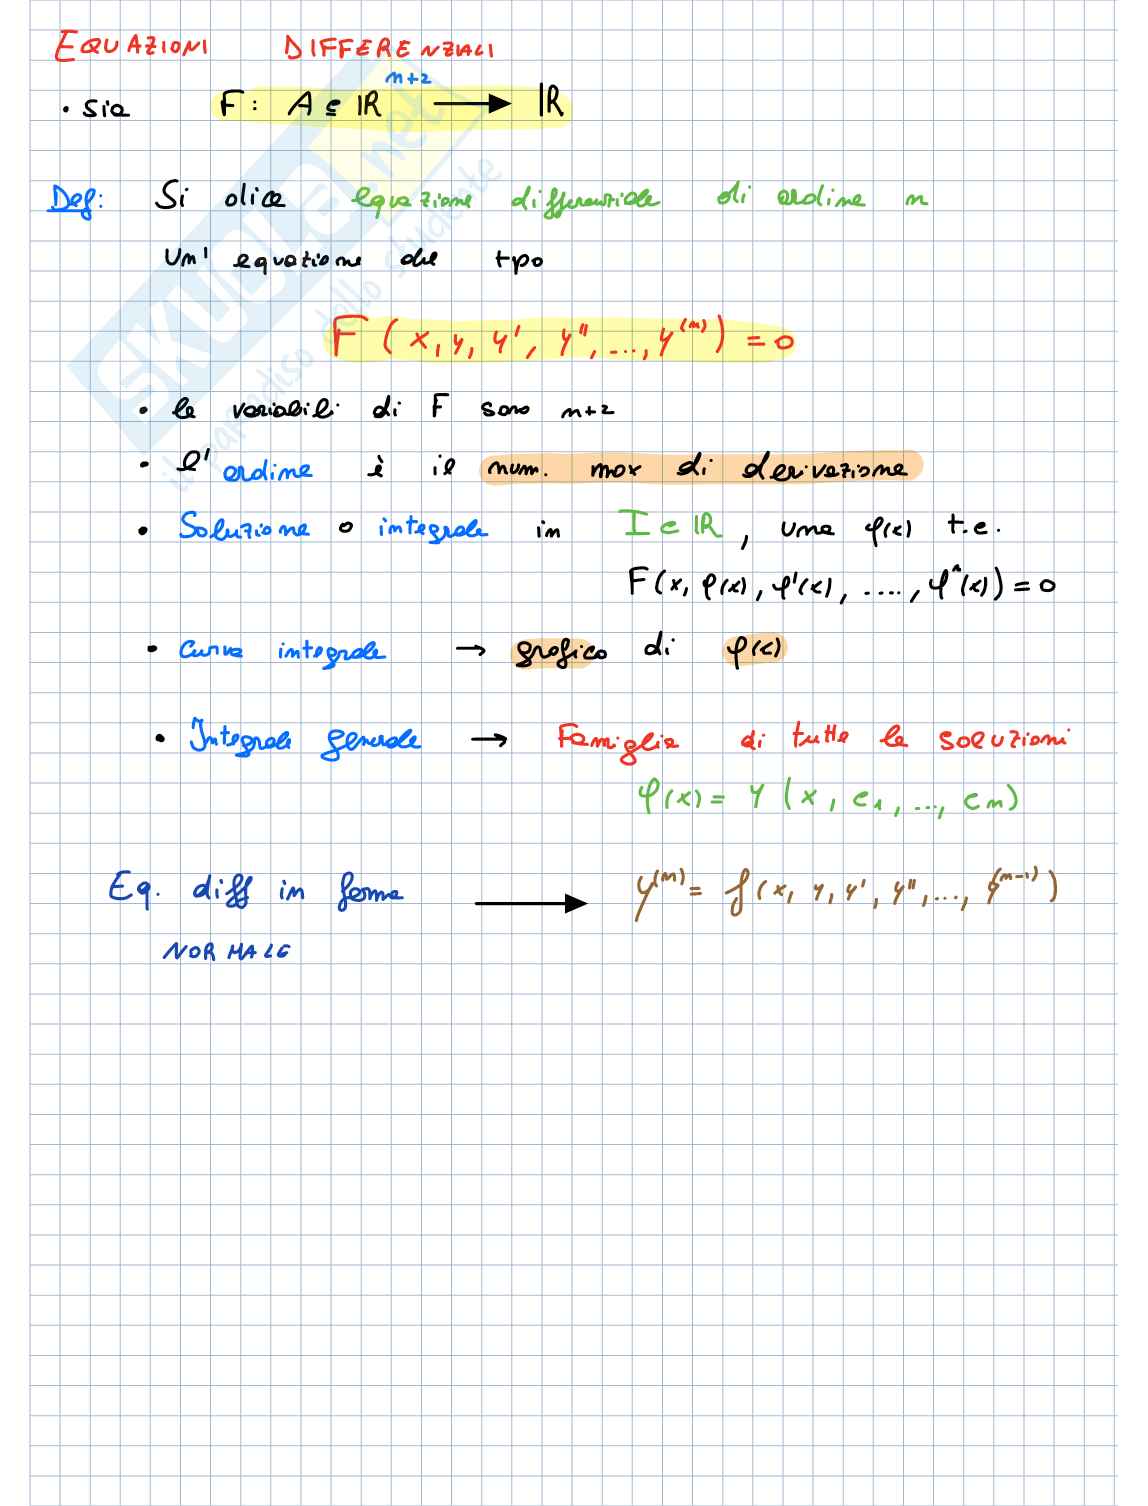 EQUAZIONI DIFFERENZIALI
• Sia F: A ⊆ ℝⁿ⁺² ⟶ ℝ
Def: Si dice equazione differenziale di ordine n
un' equazione del tpo
F ( x, y, y', y'', ..., y⁽ⁿ⁾ ) = 0
• le variabili di F sono n+2
• l' ordine è il num. max di derivazione
• Soluzione o integrale in I ⊂ ℝ, una φ(x) t.c.
F(x, φ(x), φ'(x), ...., φⁿ(x)) = 0
• Curva integrale → grafico di φ(x)
• Integrale generale → Famiglia di tutte le soluzioni
φ(x) = y ( x, c₁, ..., cₙ )
Eq. diff in forma ⟶ y⁽ⁿ⁾ = f(x, y, y', y'', ..., y⁽ⁿ⁻¹⁾)
NORMALE
SKUOLA.net
il paradiso dello studente